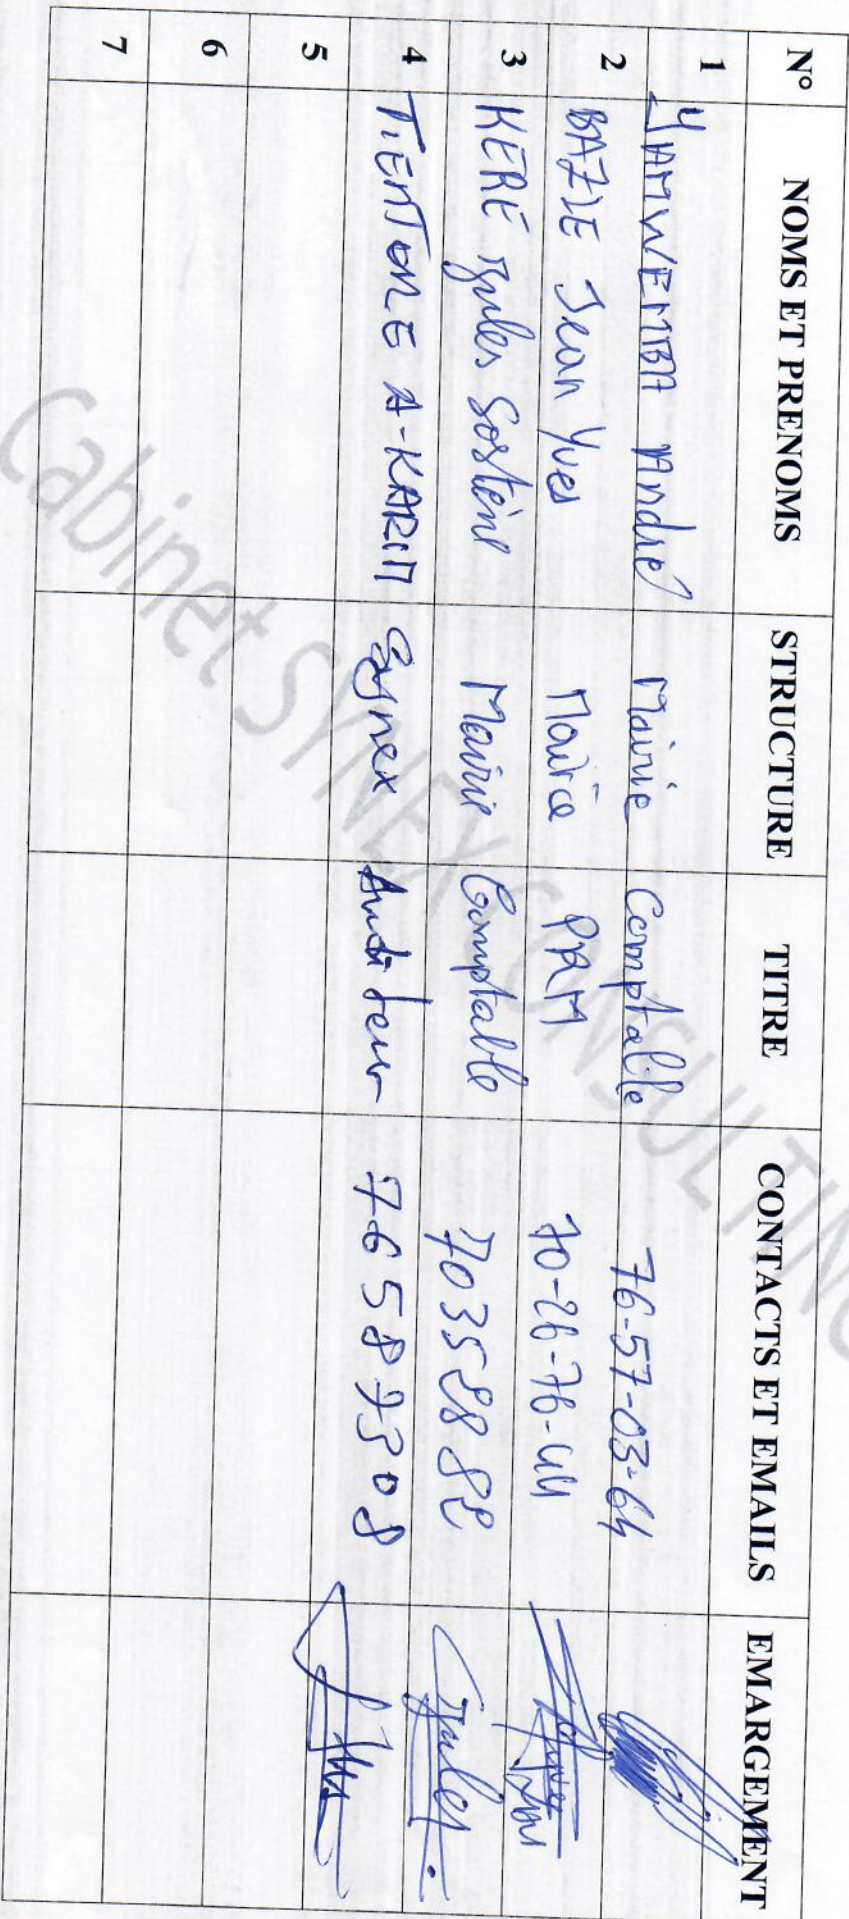 N° NOMS ET PRENOMS STRUCTURE TITRE CONTACTS ET EMAILS EMARGEMENT
1 YAMWEMBA André Mairie Comptable 76-57-03-64
2 BAZIE Jean Yves Mairie PRM 70-26-76-44
3 KERÉ Jules Sostène Mairie Comptable 70358882
4 TIENTORE A-KARIM Synex Auditeur 76587308
5
6
7
Cabinet SYNEX CONSULTING